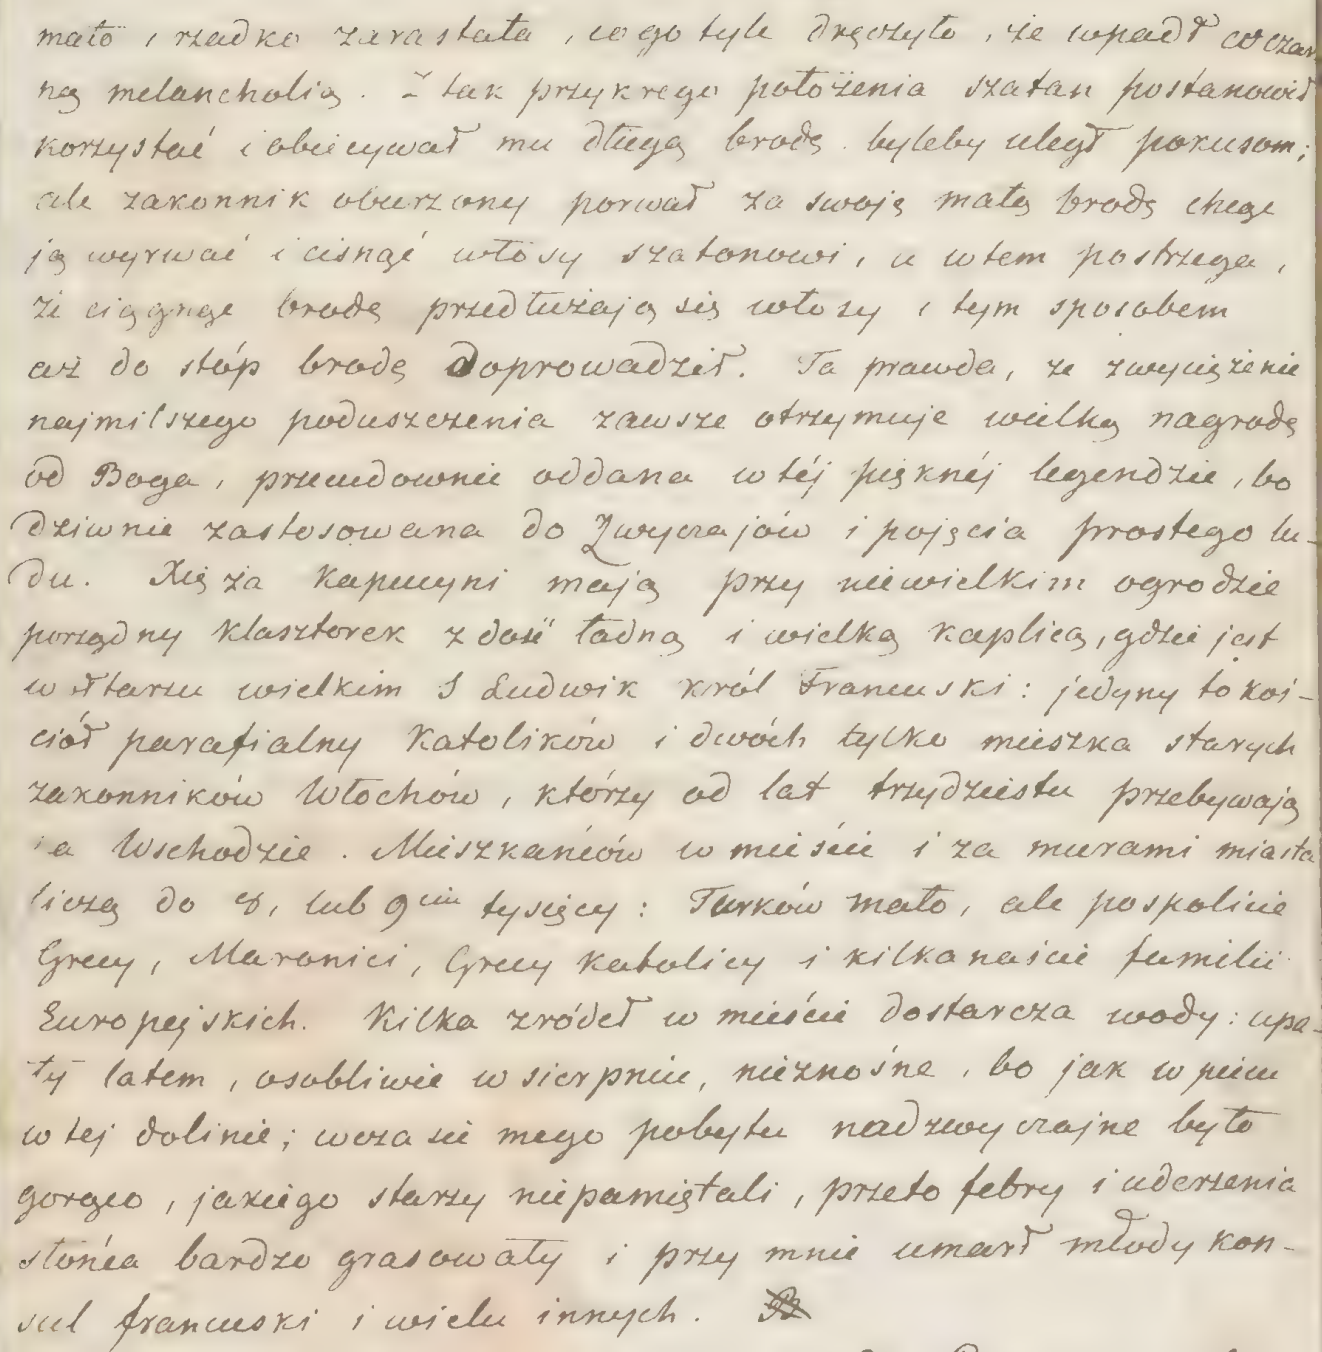 mało i rzadko zarastała, co go tyle dręczyło, że wpadł w czar-
ną melancholią. Z tak przykrego położenia szatan postanowił
korzystać i obiecywał mu długą brodę byleby uległ pokusom;
ale zakonnik oburzony porwał za swoję małą brodę chcąc
ją wyrwać i cisnąć włosy szatanowi, a wtem postrzega,
że ciągnąc brodę przedłużają się włosy i tym sposobem
aż do stóp brodę doprowadził. Ta prawda, że zwyciężenie
najmilszego poduszczenia zawsze otrzymuje wielką nagrodę
od Boga, przecudownie oddana w téj pięknéj legendzie, bo
dziwnie zastosowana do zwyczajów i pojęcia prostego lu-
du. Xięża Kapucyni mają przy niewielkim ogrodzie
porządny klasztorek z dość ładną i wielką kaplicą, gdzie jest
w ołtarzu wielkim S Ludwik król Francuski: jedyny to koś-
ciół parafialny Katolików i dwóch tylko mieszka starych
zakonników Włochów, którzy od lat trzydziestu przebywają
na Wschodzie. Mieszkańców w mieście i za murami miasta
liczą do 8, lub 9ciu tysięcy: Turków mało, ale pospolicie
Grecy, Maronici, Grecy katolicy i kilkanaście familii
Europejskich. Kilka zródeł w mieście dostarcza wody: upa-
ły latem, osobliwie w sierpniu, nieznośne, bo jak w piecu
w tej dolinie; w czasie mego pobytu nadzwyczajne było
gorąco, jakiego starzy niepamiętali, przeto febry i uderzenia
słońca bardzo grasowały i przy mnie umarł młody kon-
sul francuski i wielu innych.